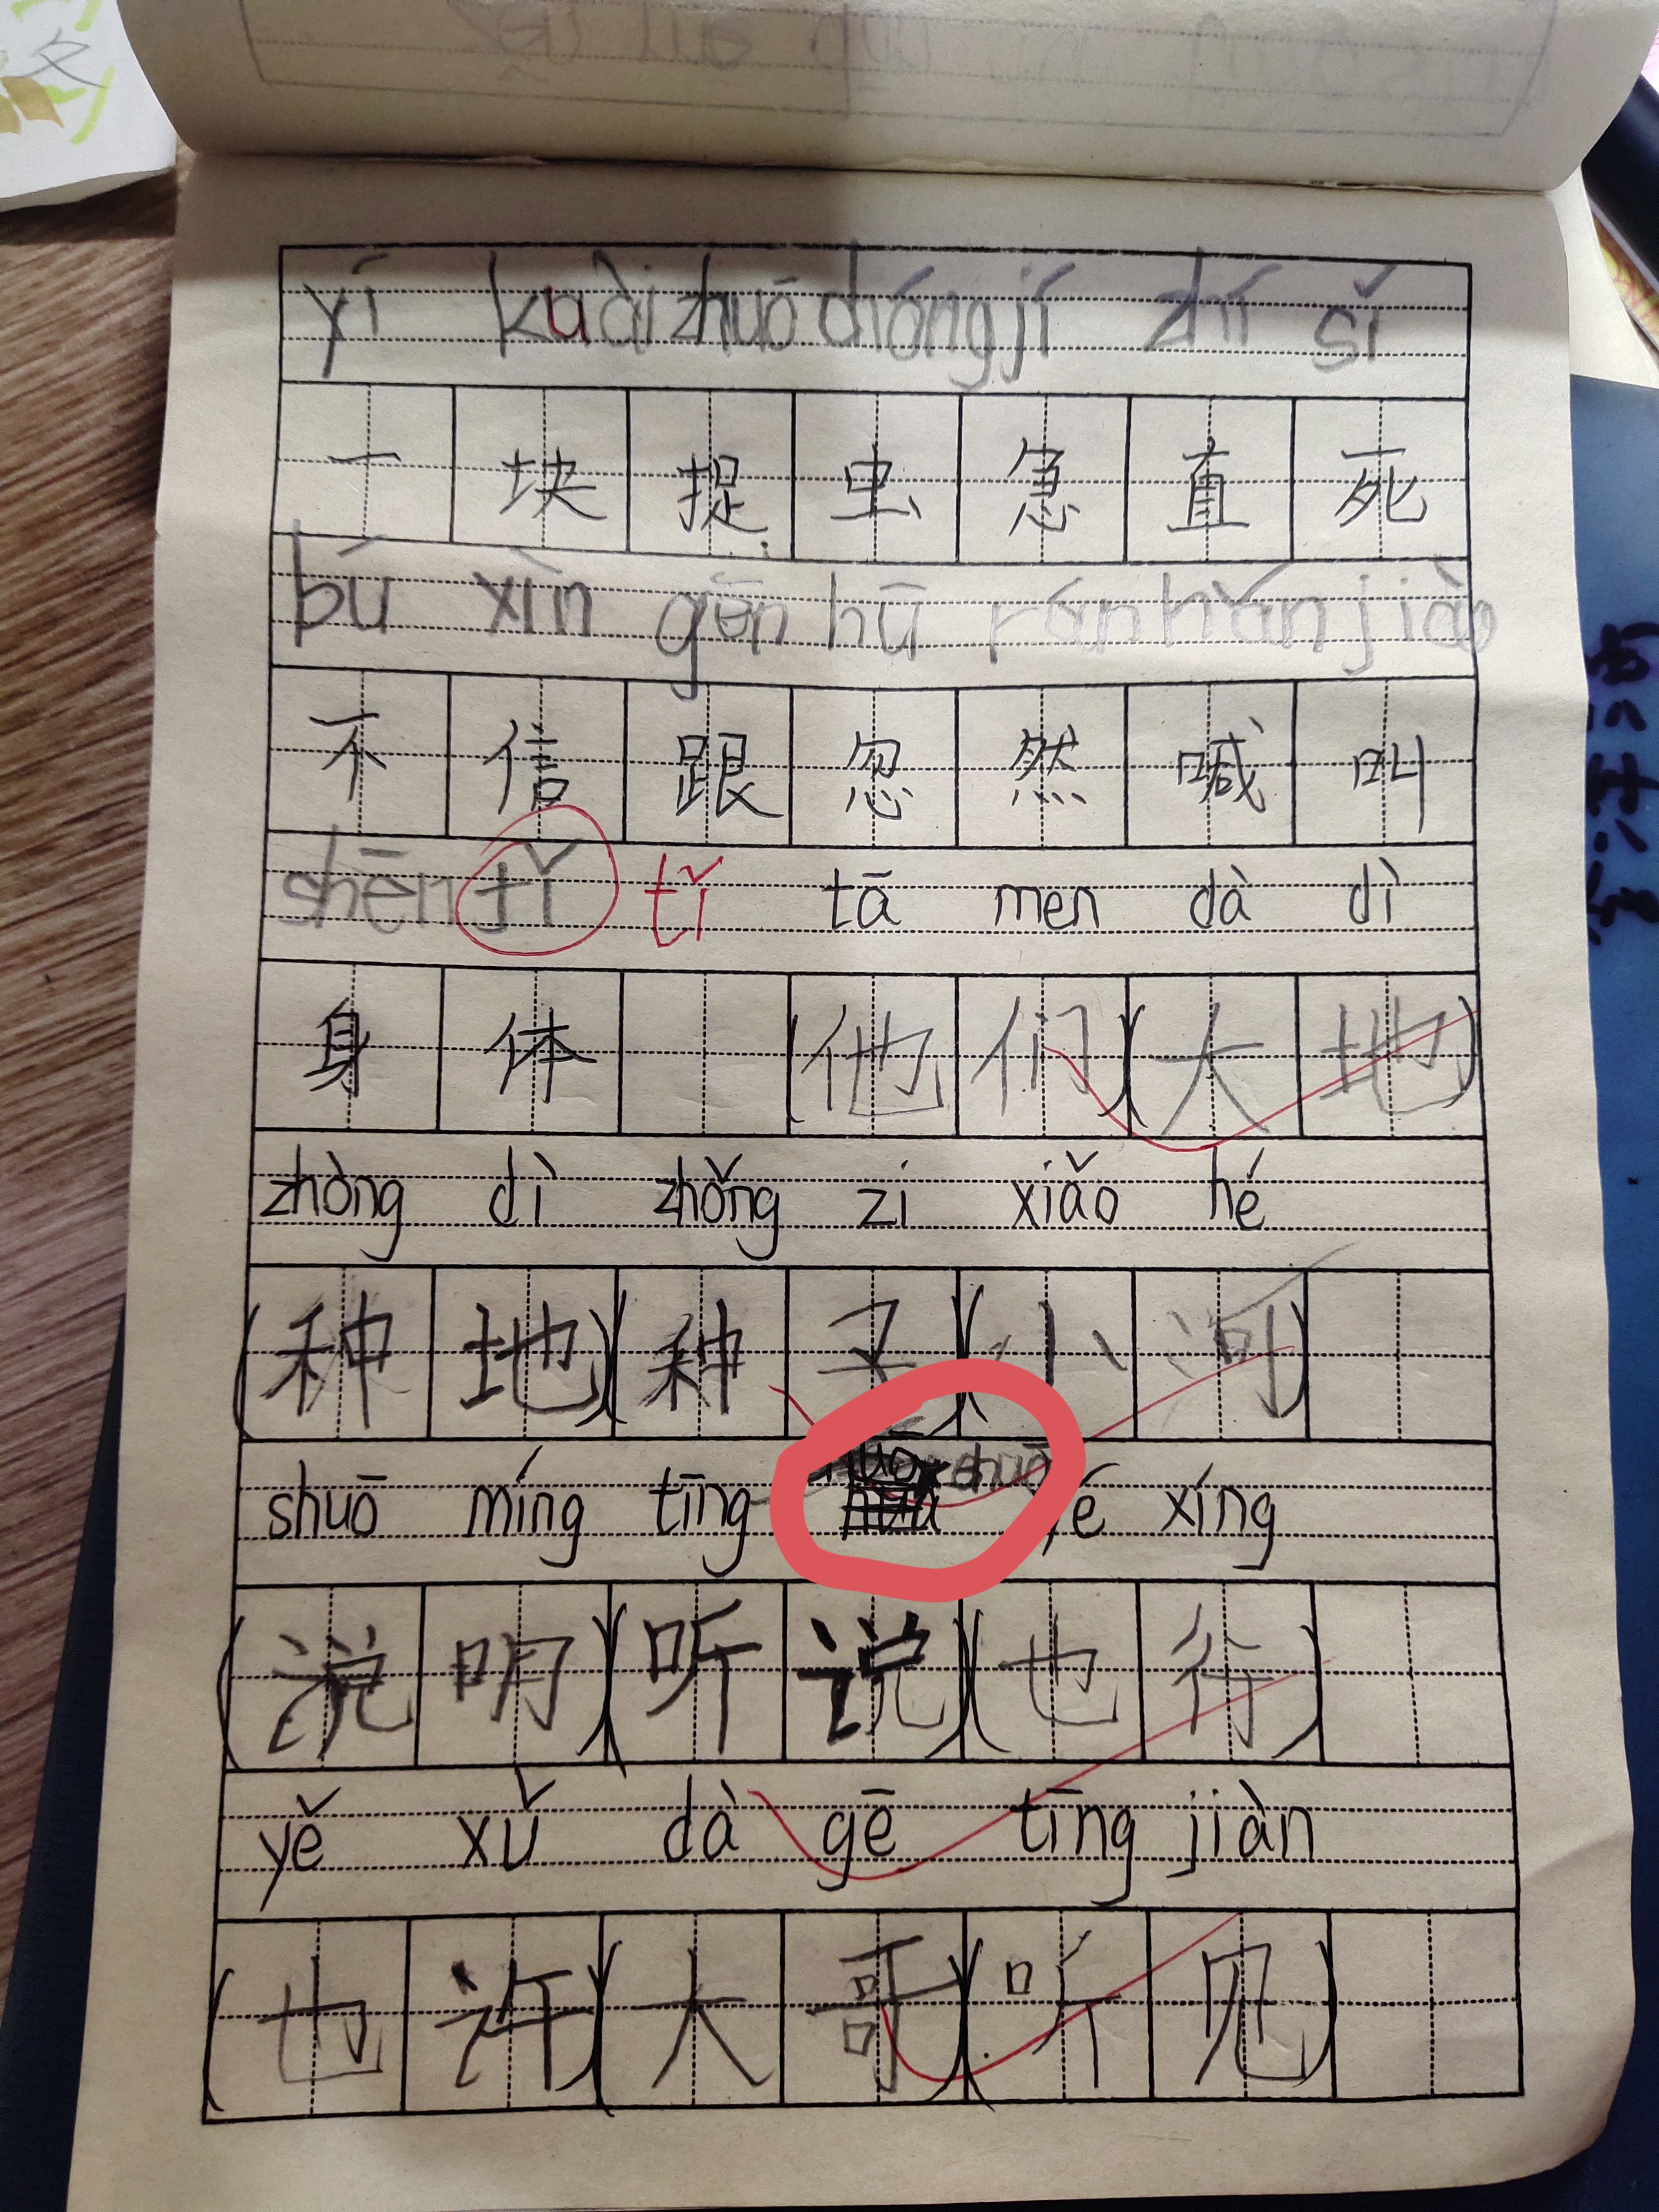 yí kuài zhuō chóng jí zhí sǐ
一 块 捉 虫 急 直 死
bú xìn gēn hū rán hǎn jiào
不 信 跟 忽 然 喊 叫
shēn tǐ tǐ tā men dà dì
身 体 (他 们)(大 地)
zhòng dì zhǒng zi xiǎo hé
(种 地)(种 子)(小 河)
shuō míng tīng shuō yé xíng
(说 明)(听 说)(也 行)
yě xǔ dà gē tīng jiàn
(也 许)(大 哥)(听 见)